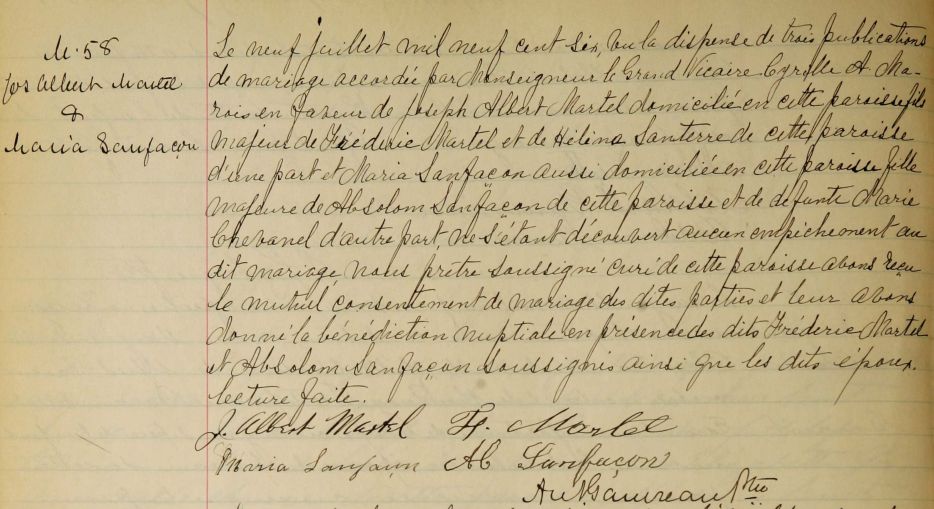 M. 58
Jos Albert Martel
&
Maria Sanfaçon
Le neuf juillet mil neuf cent six, vu la dispense de trois publications
de mariage accordée par Monseigneur le Grand Vicaire Cyrille A. Ma-
rois en faveur de Joseph Albert Martel domicilié en cette paroisse fils
majeur de Fréderic Martel et de Hélèna Santerre de cette paroisse
d'une part et Maria Sanfaçon aussi domiciliée en cette paroisse fille
majeure de Absolom Sanfaçon de cette paroisse et de defunte Marie
Chevanel d'autre part, ne s'étant découvert aucun empêchement au
dit mariage, nous prêtre soussigné curé de cette paroisse avons reçu
le mutuel consentement de mariage des dites parties et leur avons
donné la bénédiction nuptiale en présence des dits Fréderic Martel
et Absolom Sanfaçon soussignés ainsi que les dits époux.
lecture faite.
J. Albert Martel Fr. Martel
Maria Sanfaçon Ab Sanfaçon
Ptre